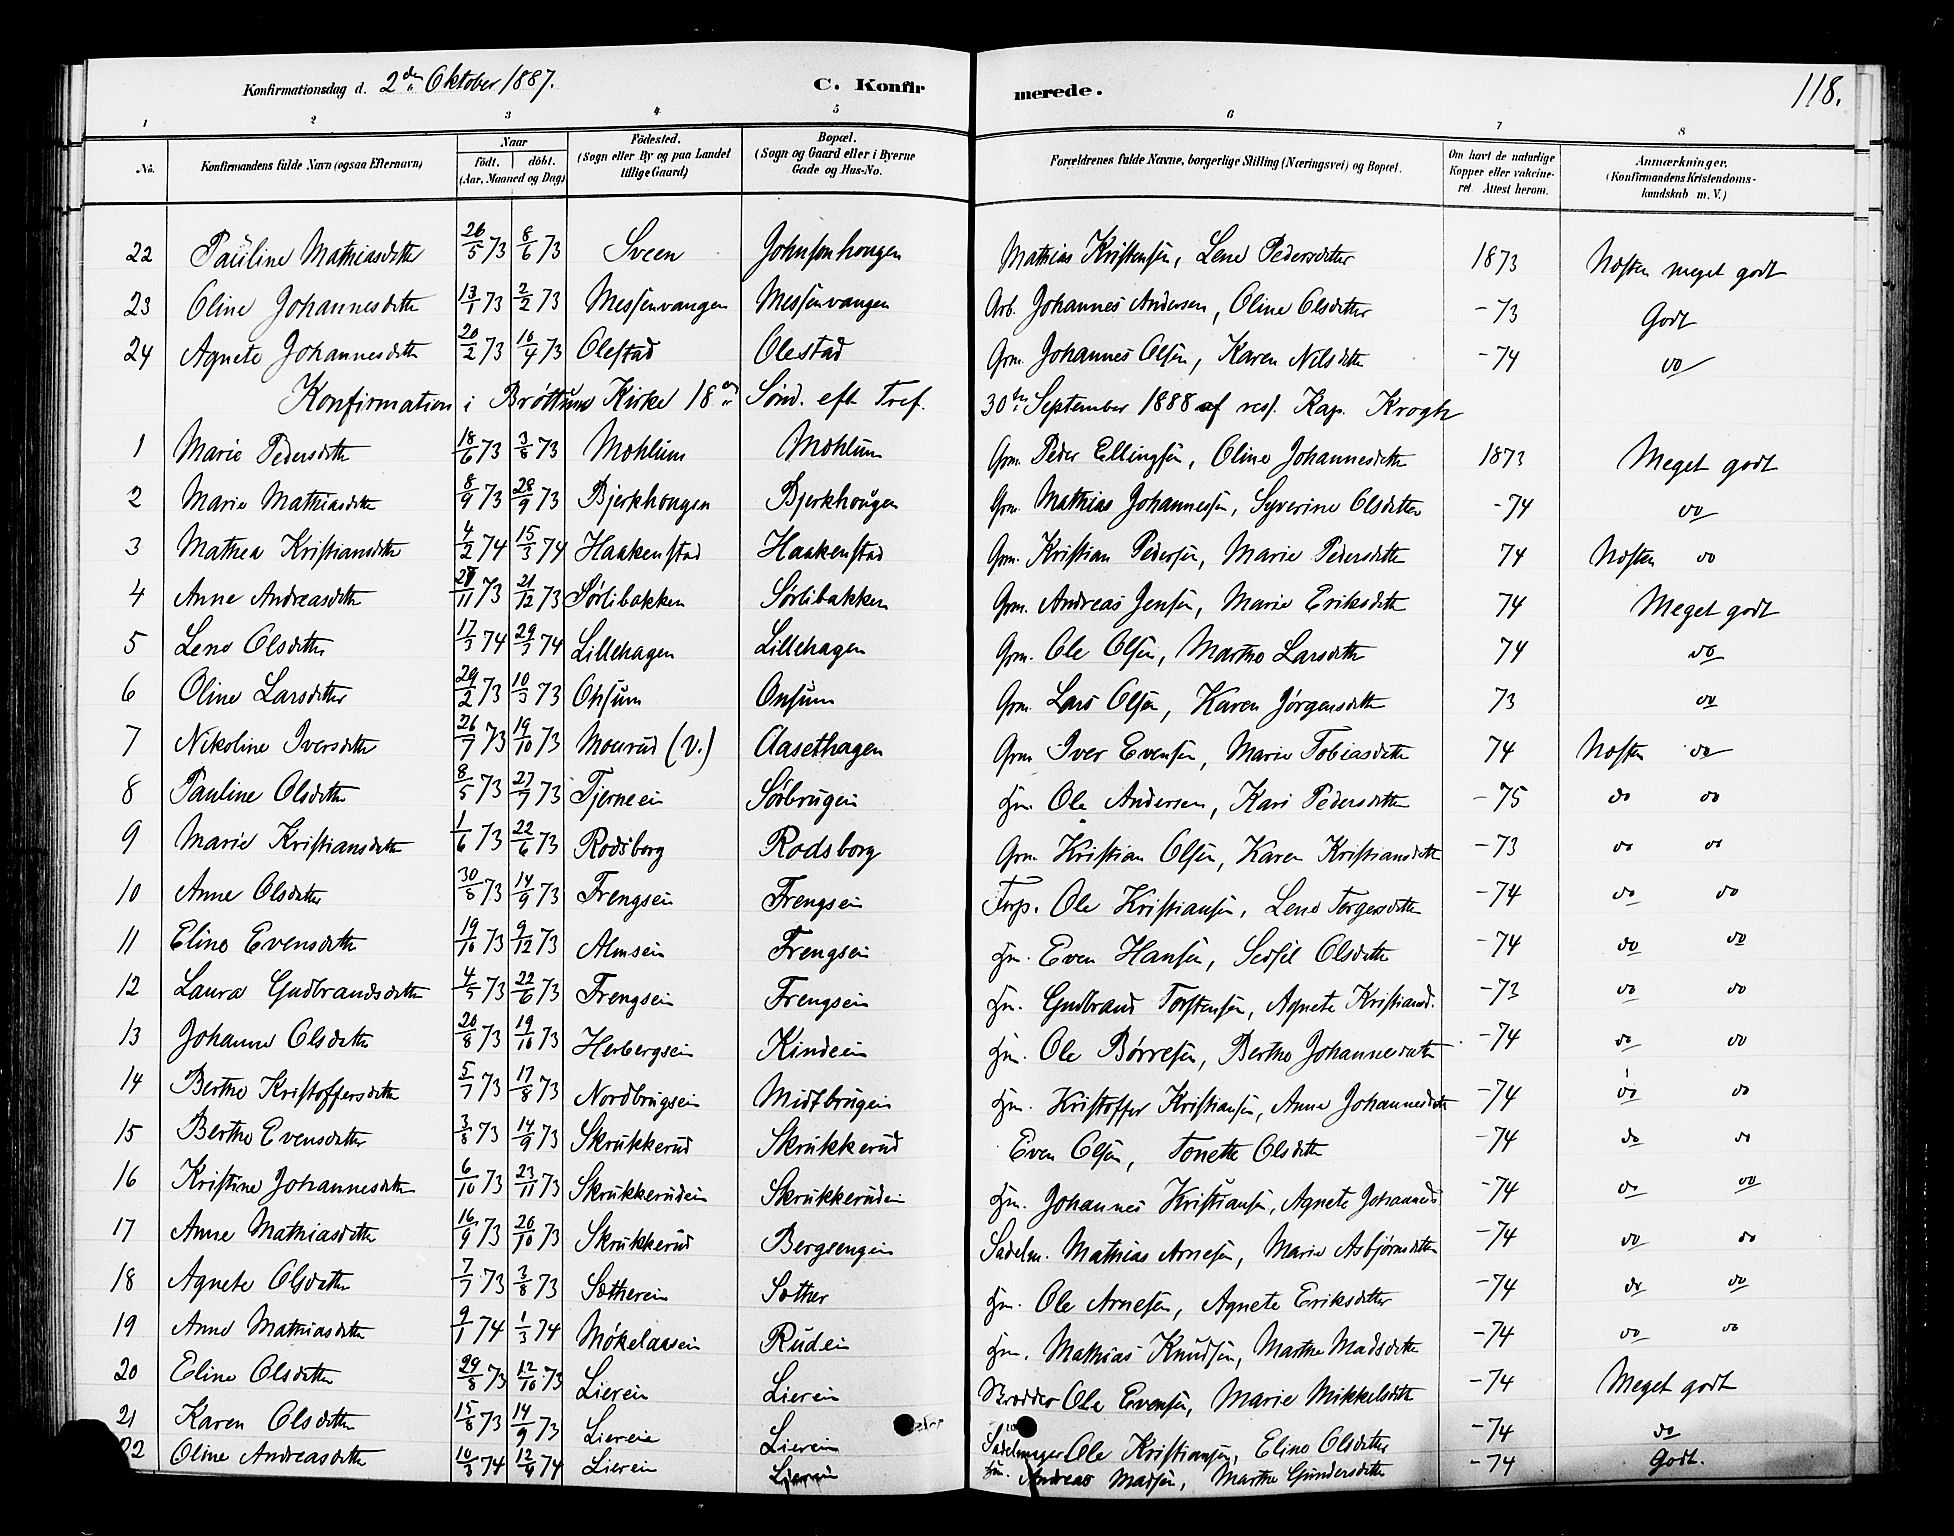 Konfirmationsdag d. 2den Oktober 1887. C. Konfir merede. 118.
1 2 3 4 5 6 7 8
No. Konfirmandens fulde Navn (ogsaa Efternavn) Naar født. døbt. (Aar, Maaned og Dag) Födested. (Sogn eller By og paa Landet tillige Gaard) Bopæl. (Sogn og Gaard eller i Byerne Gade og Hus-No. Forældrenes fulde Navne, borgerlige Stilling (Næringsvei) og Bopæl. Om havt de naturlige Kopper eller vakcineret Attest herom. Anmærkninger. (Konfirmandens Kristendomskundskab m. V.)
22 Pauline Mathiasdatter 26/5 73 8/6 73 Sveen Johnsenhougen Mathias Kristensen, Lene Pedersdatter 1873 Næsten meget godt
23 Oline Johannesdatter 13/1 73 2/2 73 Messenvangen Messenvangen Arb. Johannes Andersen, Oline Olsdatter - 73 Godt
24 Agnete Johannesdatter 20/2 73 16/4 73 Olestad Olestad Grm. Johannes Olsen, Karen Nilsdatter - 74 do
Konfirmation i Brøttum Kirke 18de Sønd. eft Tref. 30te September 1888 af res. Kap. Krogh
1 Marie Pedersdatter 18/6 73 3/8 73 Mæhlum Mæhlum Grm. Peder Ellingsen, Oline Johannesdatter 1873 Meget godt
2 Marie Mathiasdatter 8/9 73 28/9 73 Bjerkhougen Bjerkhougen Grm. Mathias Johannessen, Syverine Olsdatter - 74 do
3 Mathea Kristiansdatter 4/2 74 15/3 74 Haakenstad Haakenstad Grm. Kristian Pedersen, Marie Pedersdatter 74 Næsten do
4 Anne Andreasdatter 27/11 73 21/12 73 Sørlibakken Sørlibakken Grm. Andreas Jensen, Marie Eriksdatter 74 Meget godt
5 Lene Olsdatter 17/3 74 29/3 74 Lillehagen Lillehagen Grm. Ole Olsen, Marthe Larsdatter 74 do
6 Oline Larsdatter 29/2 73 10/3 73 Onsum Onsum Grm. Lars Olsen, Karen Jørgensdatter 73 do
7 Nikoline Iversdatter 26/7 73 19/10 73 Mourud (V.) Aasethagen Grm Iver Evensen, Marie Tobiasdatter 74 Næsten do
8 Pauline Olsdatter 8/5 73 27/7 73 Tjerneei Sørbrugei Hm. Ole Andersen, Kari Pedersdatter - 75 do do
9 Marie Kristiansdatter 1/6 73 22/6 73 Rodsborg Rodsborg Grm Kristian Olsen, Karen Kristiansdatter - 73 do do
10 Anne Olsdatter 30/8 73 14/9 73 Frengsei Frengsei Torp. Ole Kristiansen, Lene Torgersdatter - 74 do do
11 Eline Evensdatter 19/10 73 9/12 73 Almsei Frengsei Hm. Even Hansen, Sedsel Olsdatter - 74 do do
12 Laura Gudbrandsdatter 4/5 73 22/6 73 Frengsei Frengsei Hm. Gudbrand Torstensen, Agnete Kristiansd. - 73 do do
13 Johanne Olsdatter 20/8 73 19/10 73 Herbergsei Kindeei Hm. Ole Børresen, Berthe Johannesdatter - 74 do do
14 Berthe Kristoffersdatter 5/7 73 17/8 73 Nordbrugsei Midtbrugei Hm. Kristoffer Kristiansen, Anne Johannesdatter - 74 do do
15 Berthe Evensdatter 3/8 73 14/9 73 Skrukkerud Skrukkerud Even Olsen, Tonette Olsdatter - 74 do do
16 Kristine Johannesdatter 6/10 73 23/11 73 Skrukkerudei Skrukkerudei Hm. Johannes Kristiansen, Agnete Johannesd - 74 do do
17 Anne Mathiasdatter 16/9 73 26/10 73 Skrukkerud Bergsengei Sadelm. Mathias Arnesen, Marie Asbjørnsdatter - 74 do do
18 Agnete Olsdatter 7/7 73 3/8 73 Sætherei Sæther Hm. Ole Arnesen, Agnete Eriksdatter - 74 do do
19 Anne Mathiasdatter 9/1 74 1/3 74 Møkelaasei Rudei Hm. Mathias Knudsen, Marthe Madsdatter - 74 do do
20 Eline Olsdatter 29/8 73 12/10 73 Lierei Lierei Ole Evensen, Marie Mikkelsdatter - 74 Meget godt
21 Karen Olsdatter 15/8 73 14/9 73 Lierei Lierei Sadelmager Ole Kristiansen, Eline Olsdatter - 74 do
22 Oline Andreasdatter 10/3 74 12/4 74 Lierei Lierei Hm. Andreas Madsen, Marthe Gundersdatter - 74 Godt.